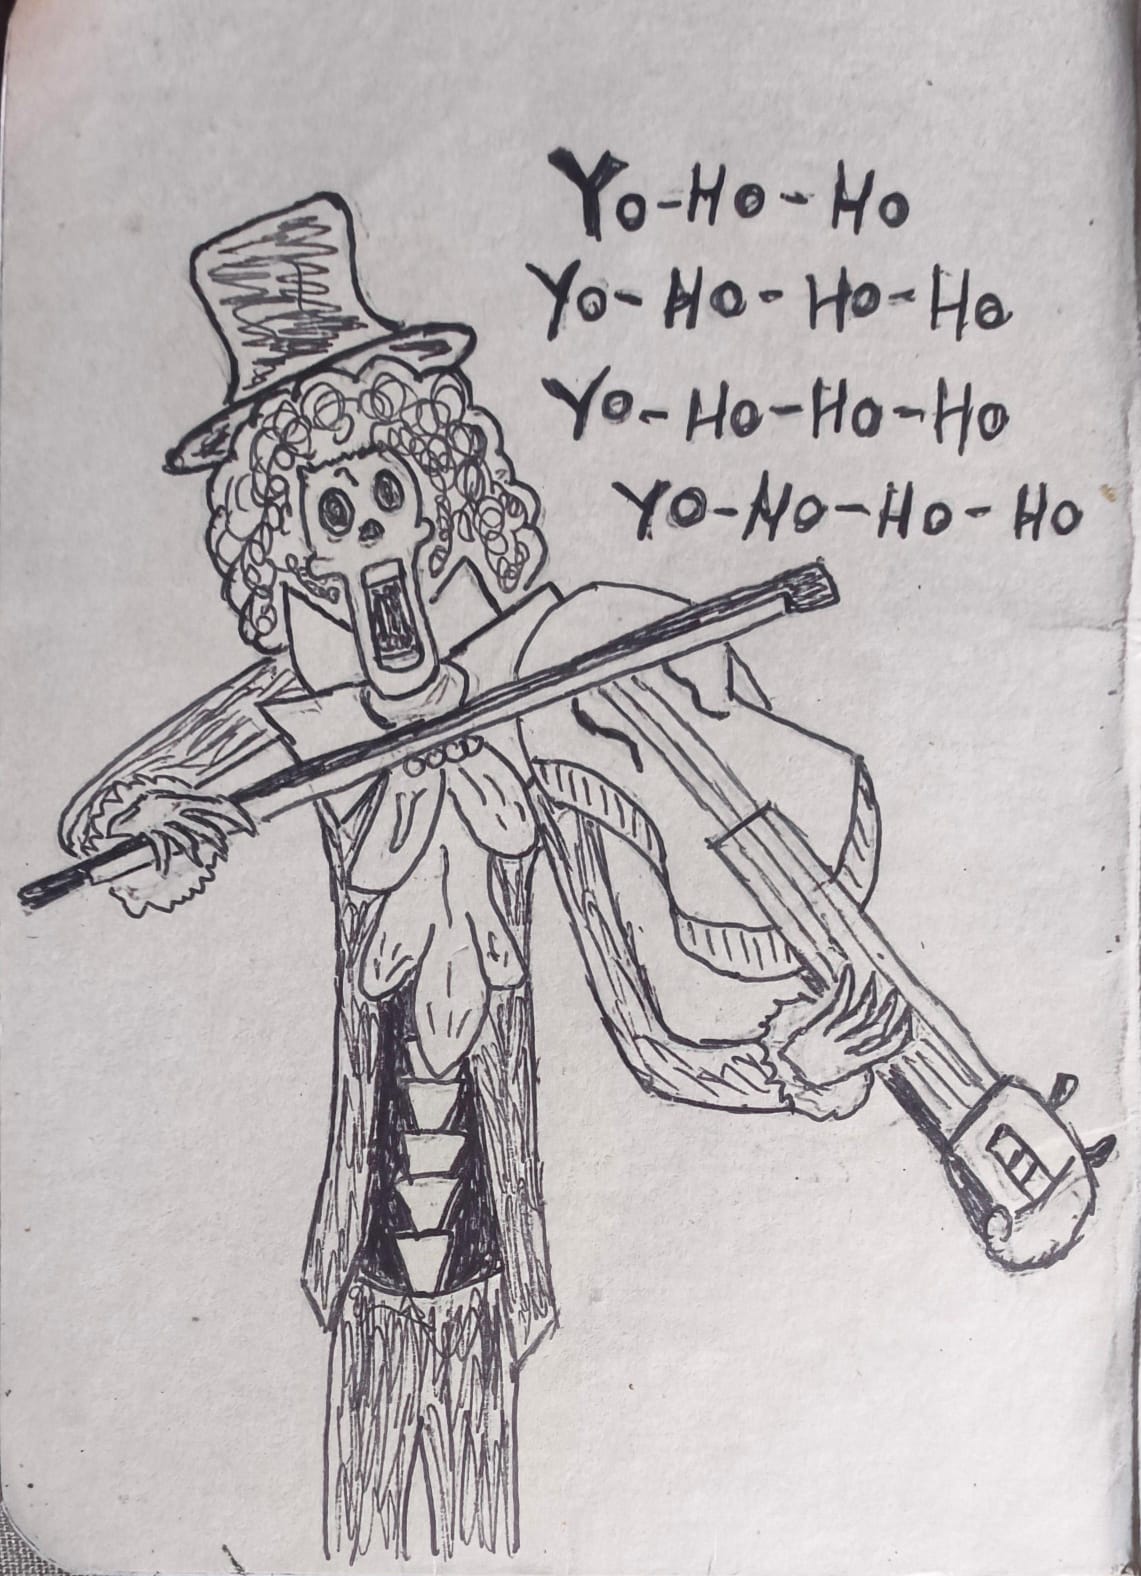 Yo-Ho-Ho
Yo-Ho-Ho-Ho
Yo-Ho-Ho-Ho
Yo-Ho-Ho-Ho